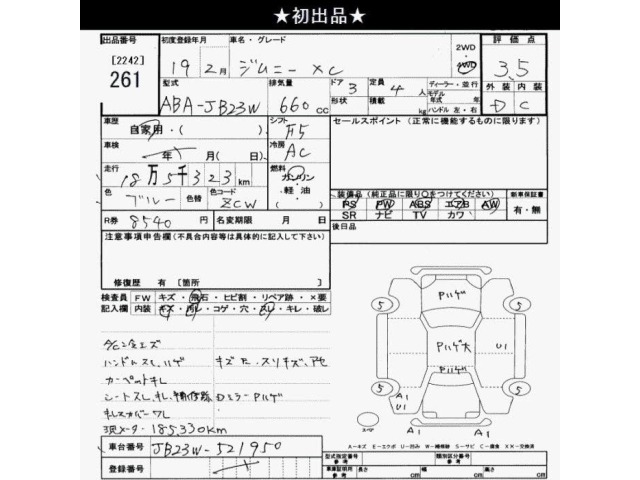 ★初出品★
出品番号 初度登録年月 車名・グレード 2WD 4WD 評価点
[2242] 261 19 2月 ジムニー XC 3.5
型式 排気量 ドア 3 定員 4人 ディーラー・並行 外装 内装
ABA-JB23W 660cc 形状 積載 kg モデル 年式 年 ハンドル 左・右 D C
車歴 シフト セールスポイント (正常に機能するものに限ります)
自家用・( ) F5
車検 年 月(日) 冷房 AC
走行 18万5千323km 燃料 ガソリン 軽油
色 ブルー 色替 色コード ZCW 装備品(純正品に限り○をつけてください) 新車保証書
PS PW ABS エアB AW 有・無
R券 8540円 名変期限 月 日 SR ナビ TV カワ
注意事項申告欄(不具合内容等は具体的に記入して下さい) 後日品
修復歴 有 [箇所 ]
検査員 FW キズ・飛石・ヒビ割・リペア跡・×要
記入欄 内装 キズ・汚レ・コゲ・穴・スレ・キレ・破レ
ハンドルスレ ハゲ
カーペットキレ
シートスレ キレ
現メータ 185,330km
Pハゲ
5 5
Pハゲ大 U1
Pハゲ
5 5
A1
U1
スペア A1 A1
A-キズ E-エクボ U-凹み W-補修跡 S-サビ C-腐食 XX-交換済
車台番号 JB23W-521950
登録番号
型式指定番号 参考 類別区分番号 参考
車庫証明用 参考 長さ cm 幅 cm 高さ cm